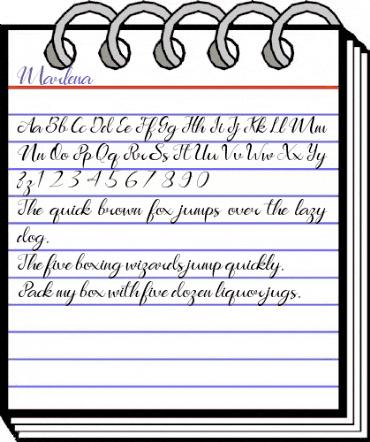 Marlena
Aa Bb Cc Dd Ee Ff Gg Hh Ii Jj Kk Ll Mm
Nn Oo Pp Qq Rr Ss Tt Uu Vv Ww Xx Yy
Zz 1 2 3 4 5 6 7 8 9 0
The quick brown fox jumps over the lazy
dog.
The five boxing wizards jump quickly.
Pack my box with five dozen liquor jugs.